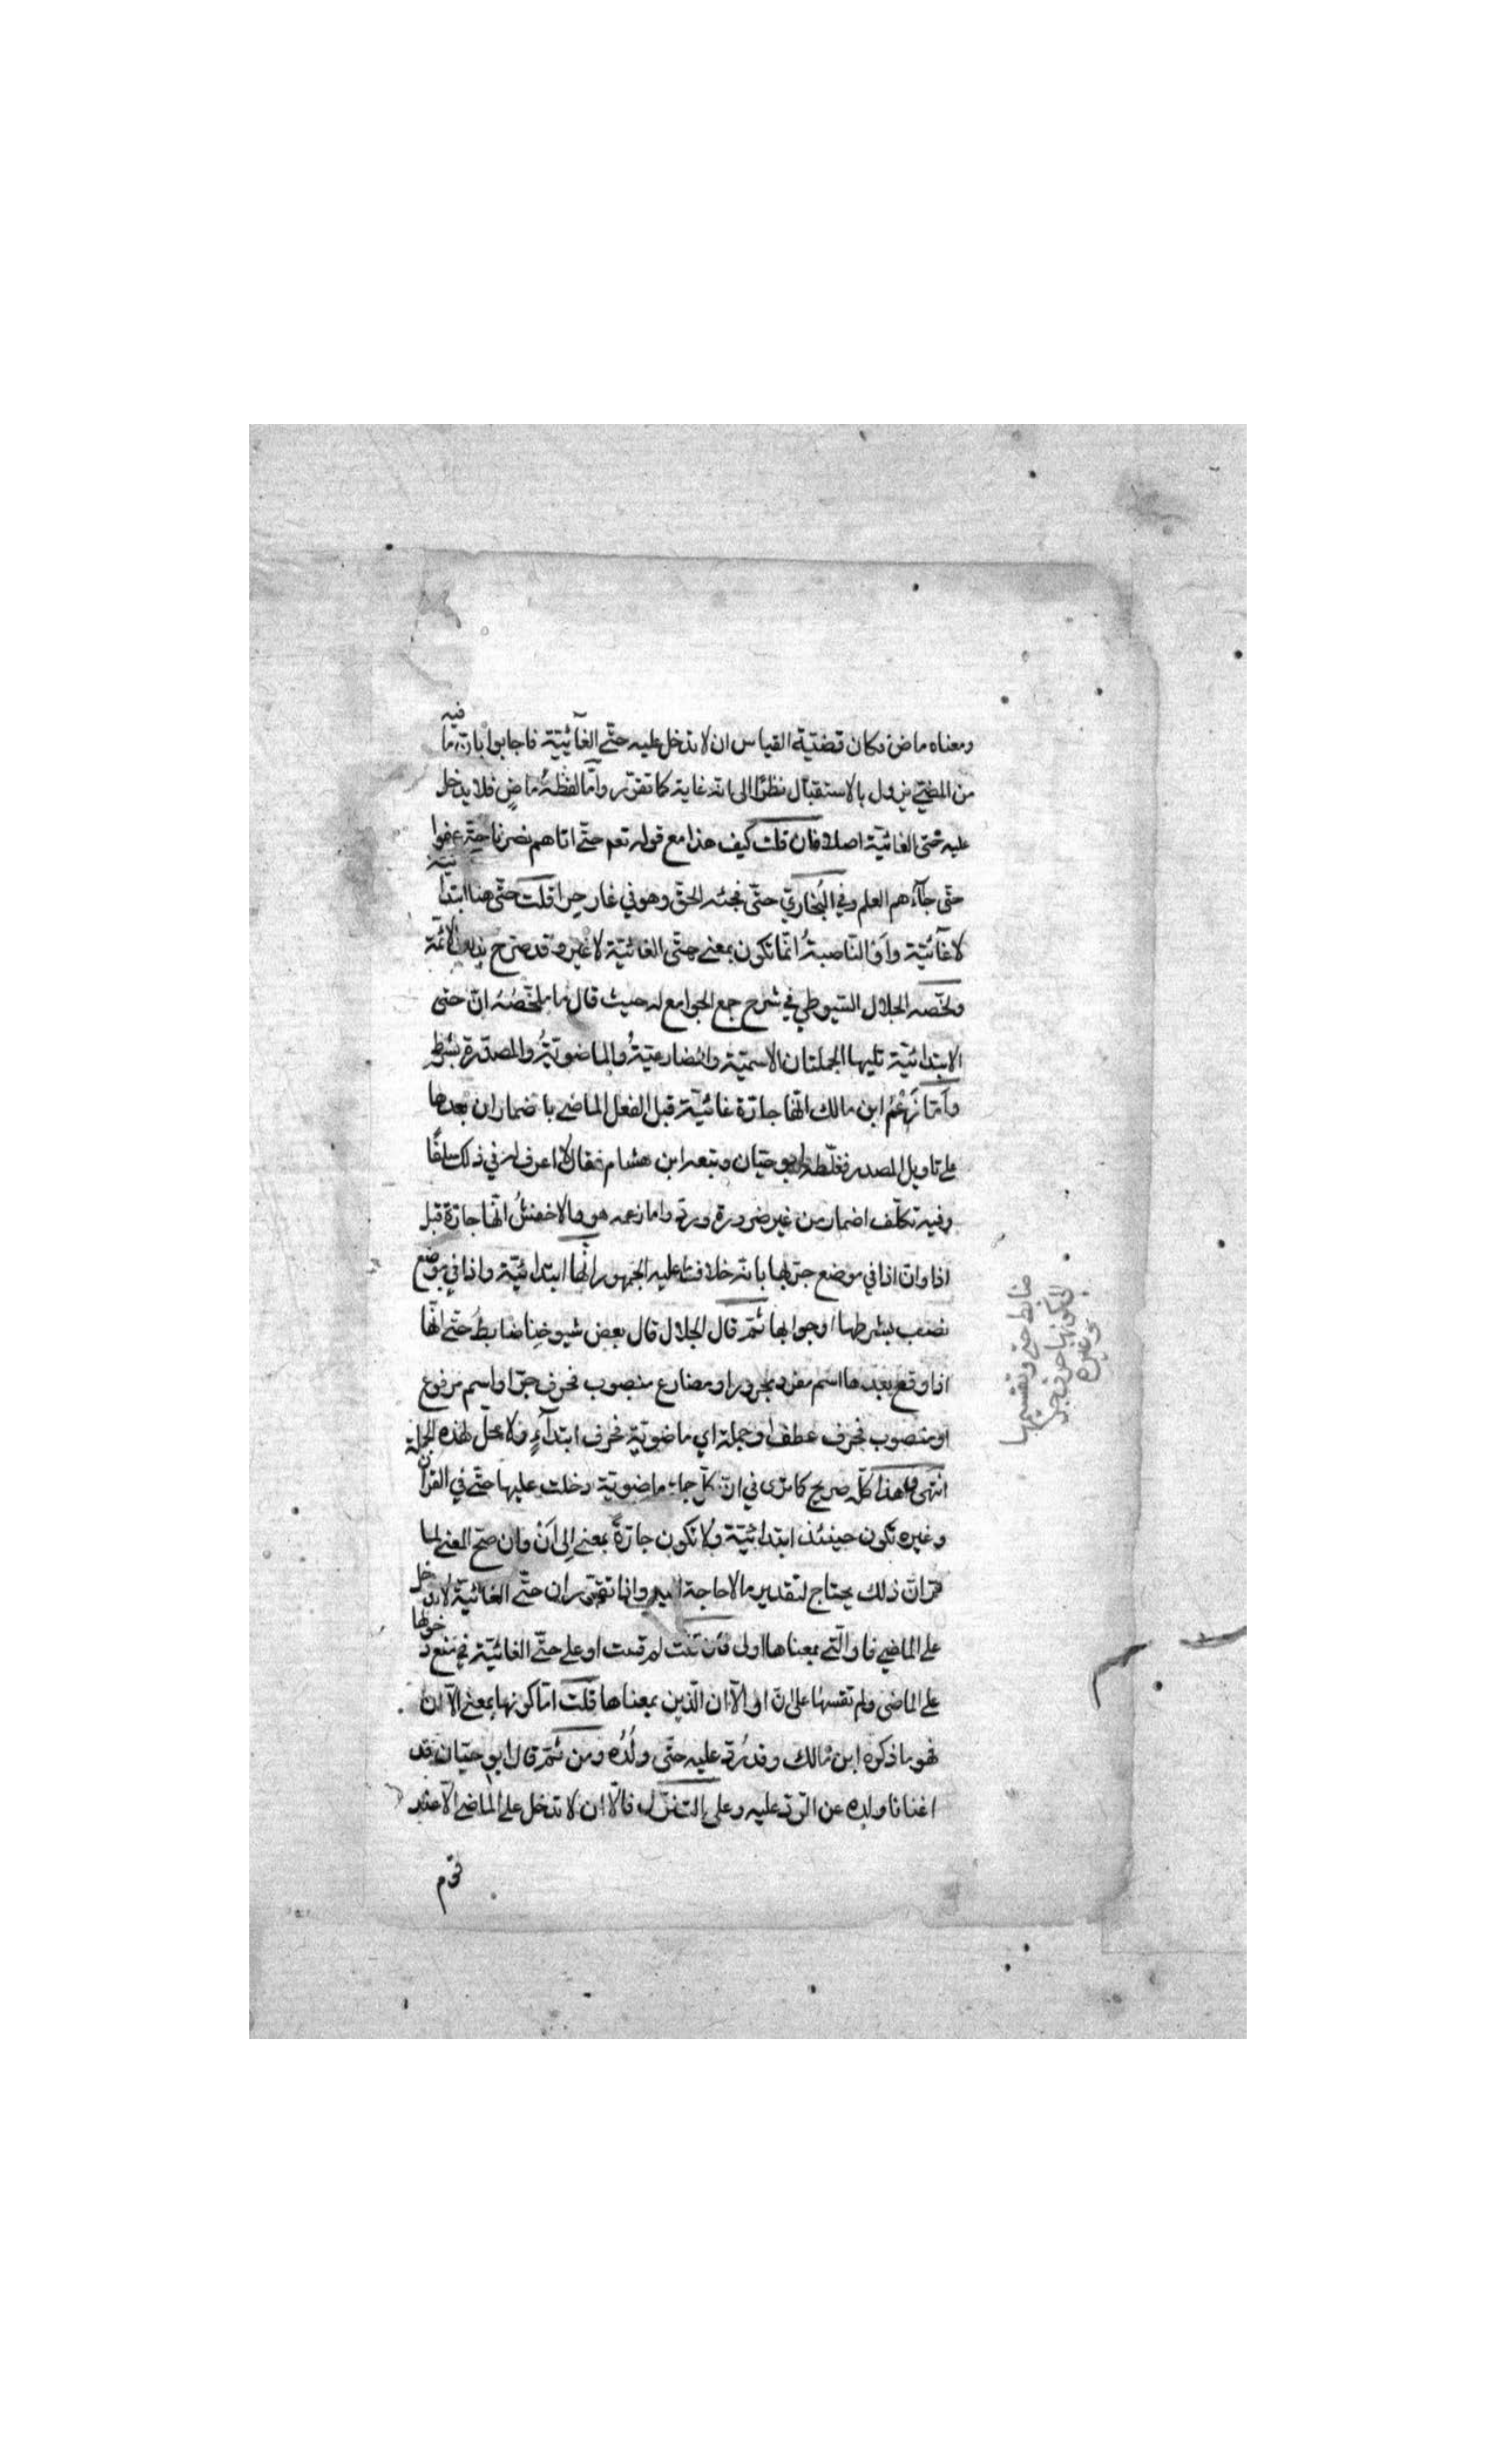 ومعناه ماض فكان قضيّة القياس ان لا تدخل عليه حتّى الغائيّة فاجابوا بان ما فيه
من المضيّ يؤول بالاستقبال نظرًا الى انه غاية كما تقرّر وامّا لفظه ماضٍ فلا يدخل
عليه حتى الغائيّة اصلا فان قلت كيف هذا مع قوله تعم حتّى اتاهم نصرنا حتّى عفوا
حتّى جاءهم العلم وفي البُخاريّ حتّى فجئه الحقّ وهو في غار حرا قلت حتّى هنا ابتدائيّة
لا غائيّة واو الناصبةُ انّما تكون بمعنى حتّى الغائيّة لا غير وقد صرّح بذلك الائمّة
ولخّصه الجلال السّيوطي في شرح جمع الجوامع له حيث قال ما ملخّصُهُ انّ حتى
الابتدائيّة تليها الجملتان الاسميّة والمضارعيّةُ والماضويّةُ والمصدّرة بشرط
وامّا زَعْمُ ابن مالك انّها جارّة غائيّة قبل الفعل الماضي باضمار ان بعدها
على تاويل المصدر فغلّطه ابو حيّان وتبعه ابن هشام فقال لا اعرف له في ذلك سلفًا
وفيه تكلّف اضمار من غير ضرورة وردّ واما زعمه هو والاخفشُ انّها جارّة قبل
اذا وانّ اذا في موضع جرّ بها بانّه خلاف ما عليه الجمهور انّها ابتدائيّة واذا في موضع
نصب بشرطها او جوابها ثمّ قال الجلال قال بعض شيوخنا ضابطُ حتّى انّها
اذا وقع بعدها اسم مفرد مجرور او مضارع منصوب فحرف جرّ او اسم مرفوع
او منصوب فحرف عطف او جملة اي ماضويّة فحرف ابتدآءٍ ولا محلّ لهذه الجملة
انتهى وهذا كلّه صريح كما ترى في انّ كلّ جملة ماضويّة دخلت عليها حتّى في القرآن
وغيره تكون حينئذ ابتدائيّة ولا تكون جارّةً بمعنى الى اَنْ وان صحّ المعنى لما
مرّ انّ ذلك يحتاج لتقدير ما لا حاجة اليه واذا تقرّر ان حتّى الغائيّة لا تدخل
على الماضي فاو الّتي بمعناها اولى فان قلت لم قست او على حتّى الغائيّة في منع دخولها
على الماضي ولم تقسها على ان او الّا ان الّذين بمعناها قلت امّا كونها بمعنى الّا ان
فهو ما ذكره ابن مالك وقد ردّ عليه حتّى ولُدُه ومن ثمّ قال ابو حيّان قد
اغنانا ولده عن الرّدّ عليه وعلى التنزّل فالّا ان لا تدخل على الماضي الّا عند
قوم
ضابط حتى وتقسيمها
الى كونها حرف جر
وغيره